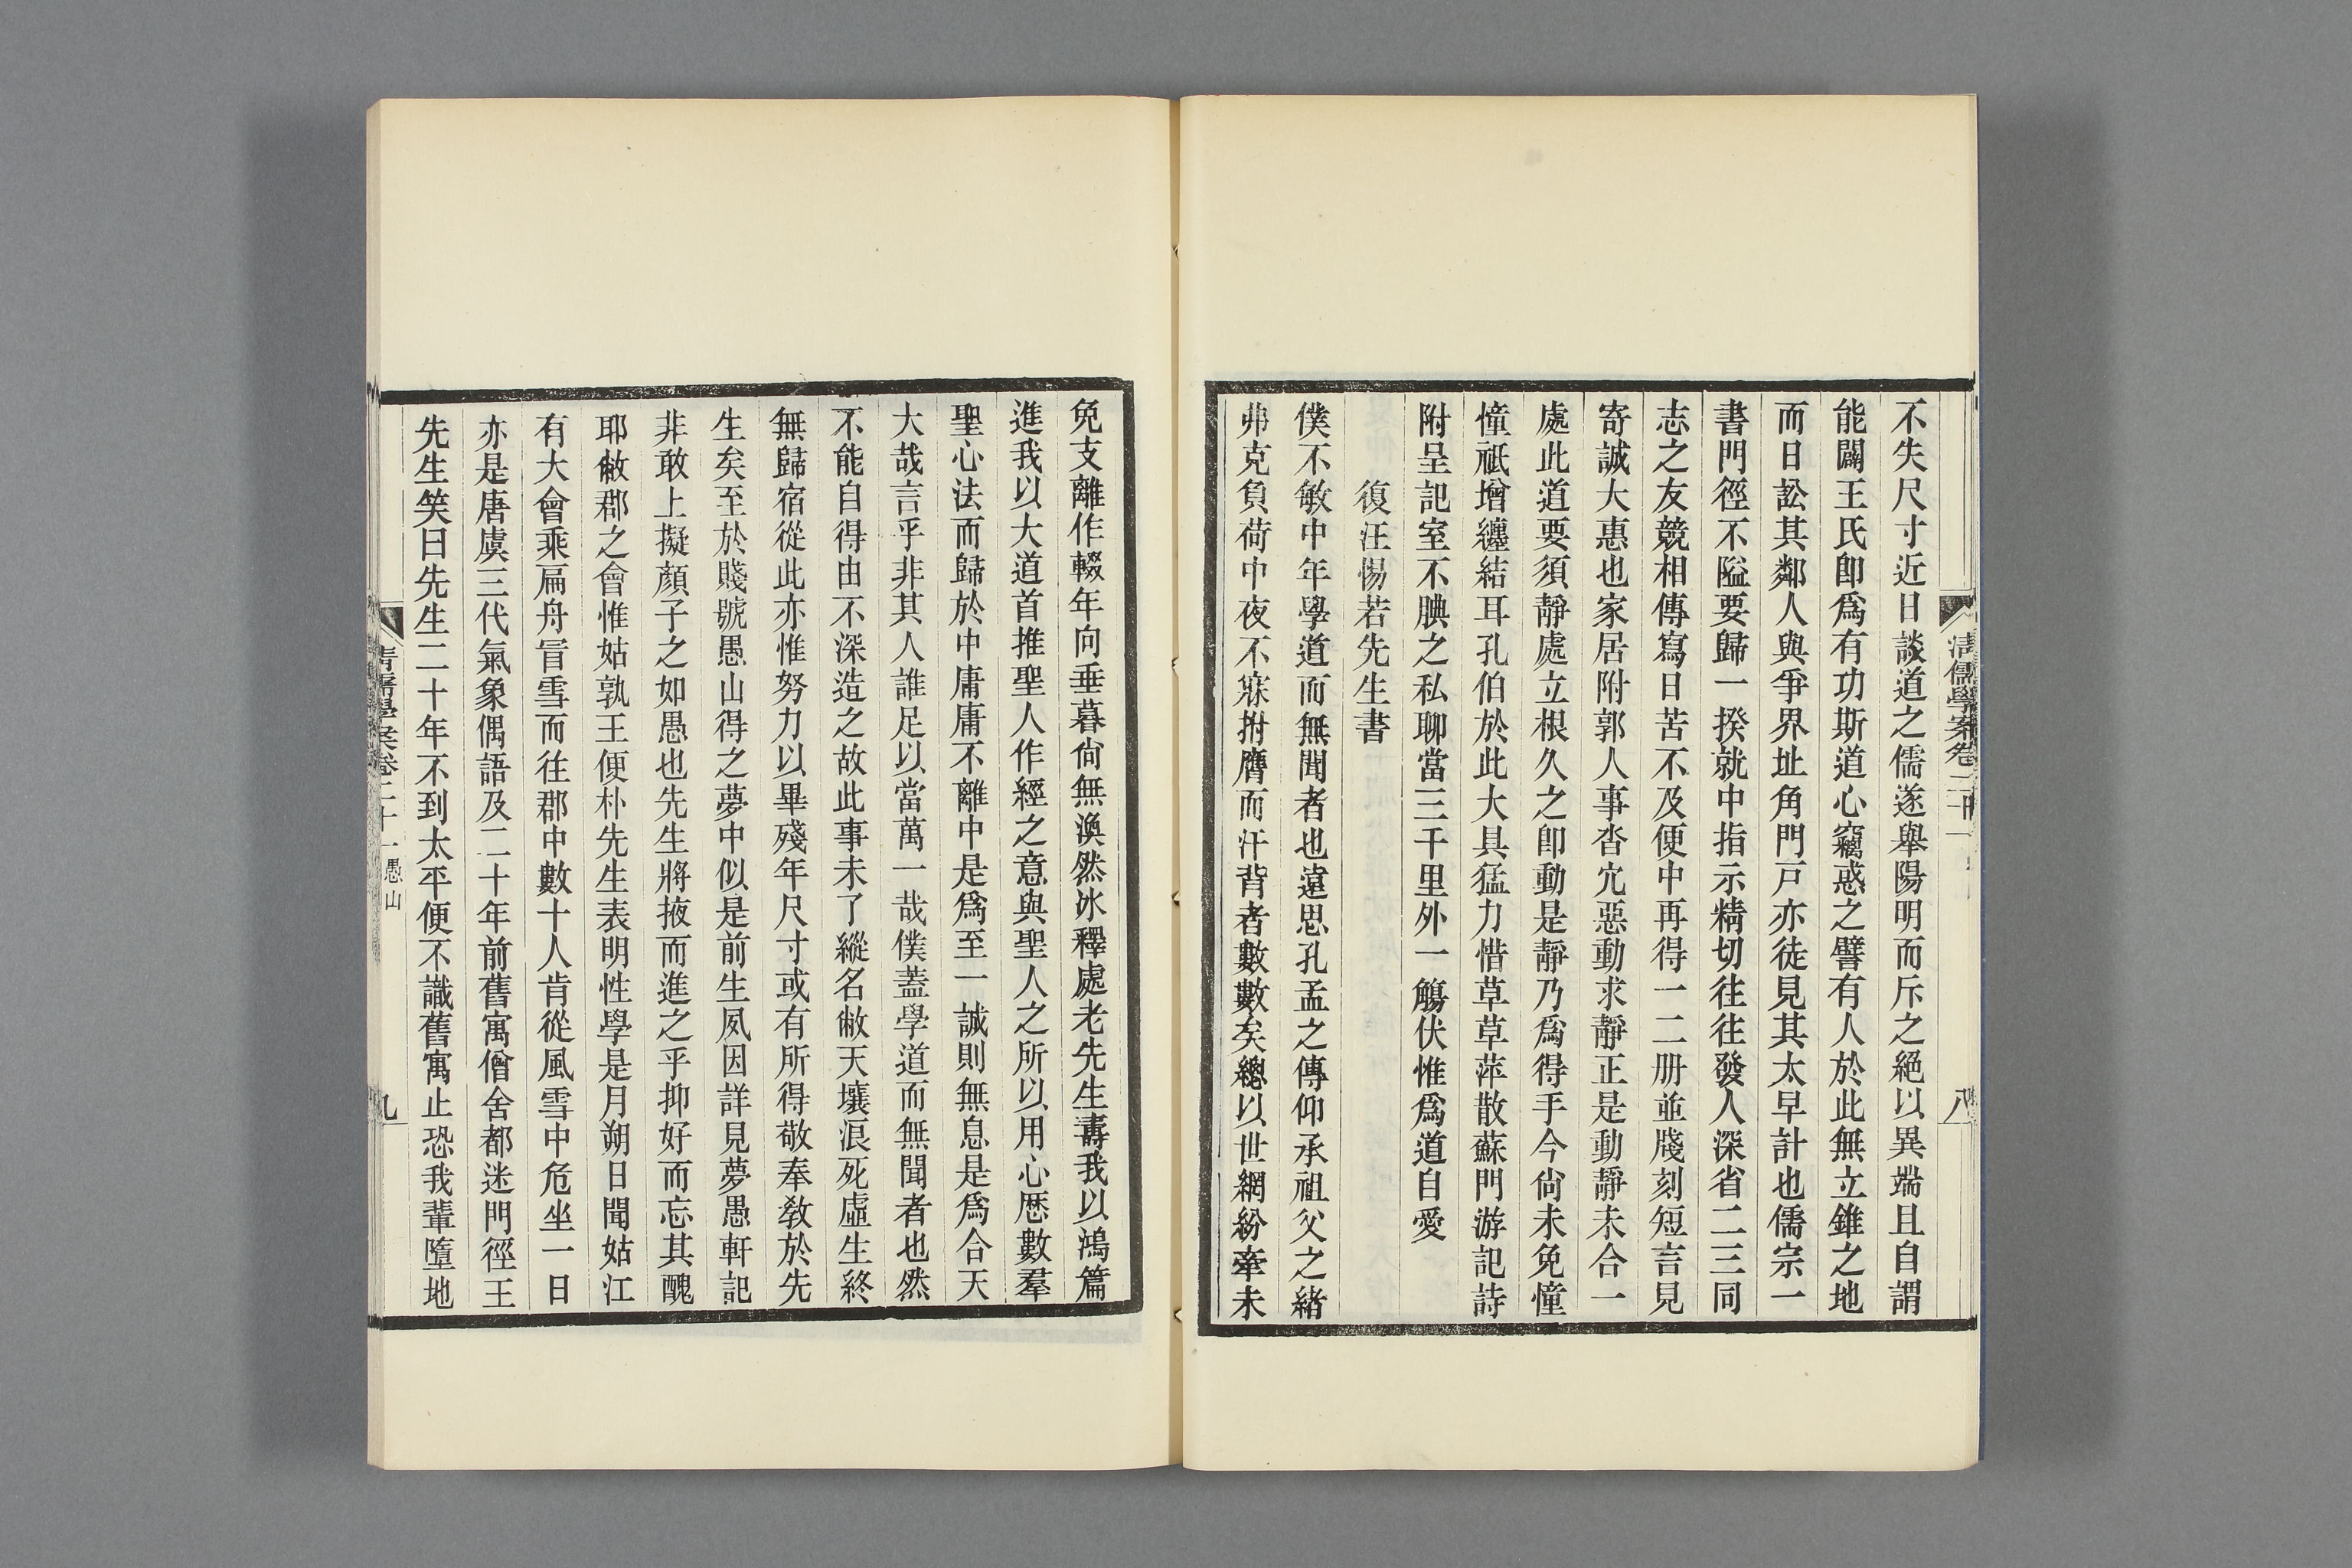 清儒學案卷二十一
八
不失尺寸近日談道之儒遂舉陽明而斥之絕以異端且自謂
能闢王氏卽爲有功斯道心竊惑之譬有人於此無立錐之地
而日訟其鄰人與爭界址角門戸亦徒見其太早計也儒宗一
書門徑不隘要歸一揆就中指示精切往往發人深省二三同
志之友競相傳寫日苦不及便中再得一二册並牋刻短言見
寄誠大惠也家居附郭人事沓宂惡動求靜正是動靜未合一
處此道要須靜處立根久之卽動是靜乃爲得手今尙未免憧
憧祇增纏結耳孔伯於此大具猛力惜草草萍散蘇門游記詩
附呈記室不腆之私聊當三千里外一觴伏惟爲道自愛
復汪惕若先生書
僕不敏中年學道而無聞者也遠思孔孟之傳仰承祖父之緒
弗克負荷中夜不寐拊膺而汗背者數數矣總以世網紛牽未
免支離作輟年向垂暮尙無渙然冰釋處老先生壽我以鴻篇
進我以大道首推聖人作經之意與聖人之所以用心厯數羣
聖心法而歸於中庸庸不離中是爲至一誠則無息是爲合天
大哉言乎非其人誰足以當萬一哉僕蓋學道而無聞者也然
不能自得由不深造之故此事未了縱名敝天壤浪死虛生終
無歸宿從此亦惟努力以畢殘年尺寸或有所得敬奉敎於先
生矣至於賤號愚山得之夢中似是前生夙因詳見夢愚軒記
非敢上擬顏子之如愚也先生將掖而進之乎抑好而忘其醜
耶敝郡之會惟姑孰王便朴先生表明性學是月朔日聞姑江
有大會乘扁舟冒雪而往郡中數十人肯從風雪中危坐一日
亦是唐虞三代氣象偶語及二十年前舊寓僧舍都迷門徑王
先生笑曰先生二十年不到太平便不識舊寓止恐我輩墮地
清儒學案卷二十一 愚山
九